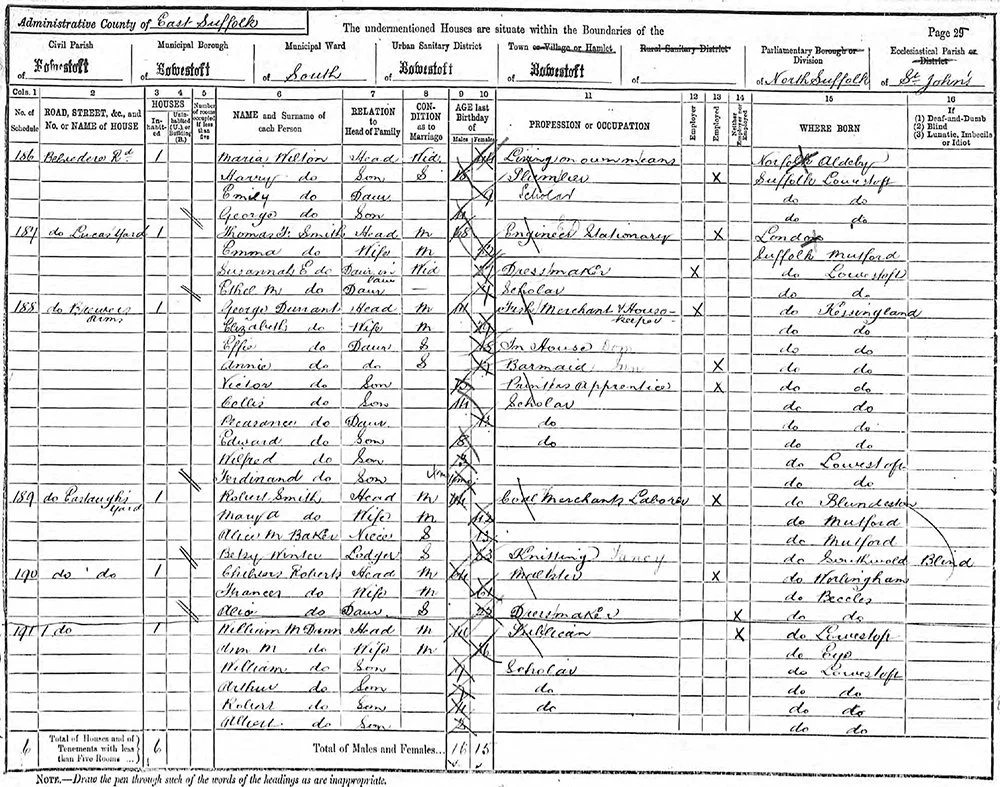 Administrative County of East Suffolk The undermentioned Houses are situate within the Boundaries of the Page 29
Civil Parish Municipal Borough Municipal Ward Urban Sanitary District Town or Village or Hamlet Rural Sanitary District Parliamentary Borough or Division Ecclesiastical Parish or District
of Lowestoft of Lowestoft of South of Lowestoft of Lowestoft of of North Suffolk of St. John's
Cols. 1 2 3 4 5 6 7 8 9 10 11 12 13 14 15 16
No. of Schedule ROAD, STREET, &c., and No. or NAME of HOUSE HOUSES Inhabited Uninhabited (U.) or Building (B.) Number of rooms occupied if less than five NAME and Surname of each Person RELATION to Head of Family CONDITION as to Marriage AGE last Birthday of Males Females PROFESSION or OCCUPATION Employer Employed Neither Employer nor Employed WHERE BORN If (1) Deaf-and-Dumb (2) Blind (3) Lunatic, Imbecile or Idiot
186 Belvedere Rd 1 Maria Wilton Head Wid Living on own means Norfolk Aldeby
Harry do Son S 18 Plumber X Suffolk Lowestoft
Emily do Daur 9 Scholar do do
George do Son do do
187 do Lucas Yard 1 Thomas F. Smith Head M Engineer Stationary X London
Emma do Wife M Suffolk Mutford
Susannah E do Daur in law Wid Dressmaker X do Lowestoft
Ethel M do Daur — Scholar do do
188 do Brewers Arms 1 George Durrant Head M Fish Merchant & House-keeper X do Kessingland
Elizabeth do Wife M do do
Effie do Daur S In House Dom do do
Annie do do S Barmaid Inn X do do
Victor do Son Printers Apprentice X do do
Collis do Son 14 Scholar do do
Pleasance do Daur do do do
Edward do Son 8 do do do
Wilfred do Son 3 do Lowestoft
Ferdinand do Son do do
189 do Yard 1 Robert Smith Head M Coal Merchants Laborer X do Blundeston
Mary A do Wife M 42 do Mutford
Alice M Baker Niece S 13 do Mutford
Betsy Winter Lodger S 63 Knitting Fancy do Southwold Blind
190 do do 1 Roberts Head M 64 Maltster X do Worlingham
Frances do Wife M 61 do Beccles
Alice do Daur S 22 Dressmaker X do do
191 do 1 William McDunn Head M Publican X do Lowestoft
Ann M do Wife M do Eye
William do Son 9 Scholar do Lowestoft
Arthur do Son 7 do do do
Robert do Son 4 do do do
Albert do Son do do
6 Total of Houses and of Tenements with less than Five Rooms ... 6 Total of Males and Females... 16 15
NOTE.—Draw the pen through such of the words of the headings as are inappropriate.